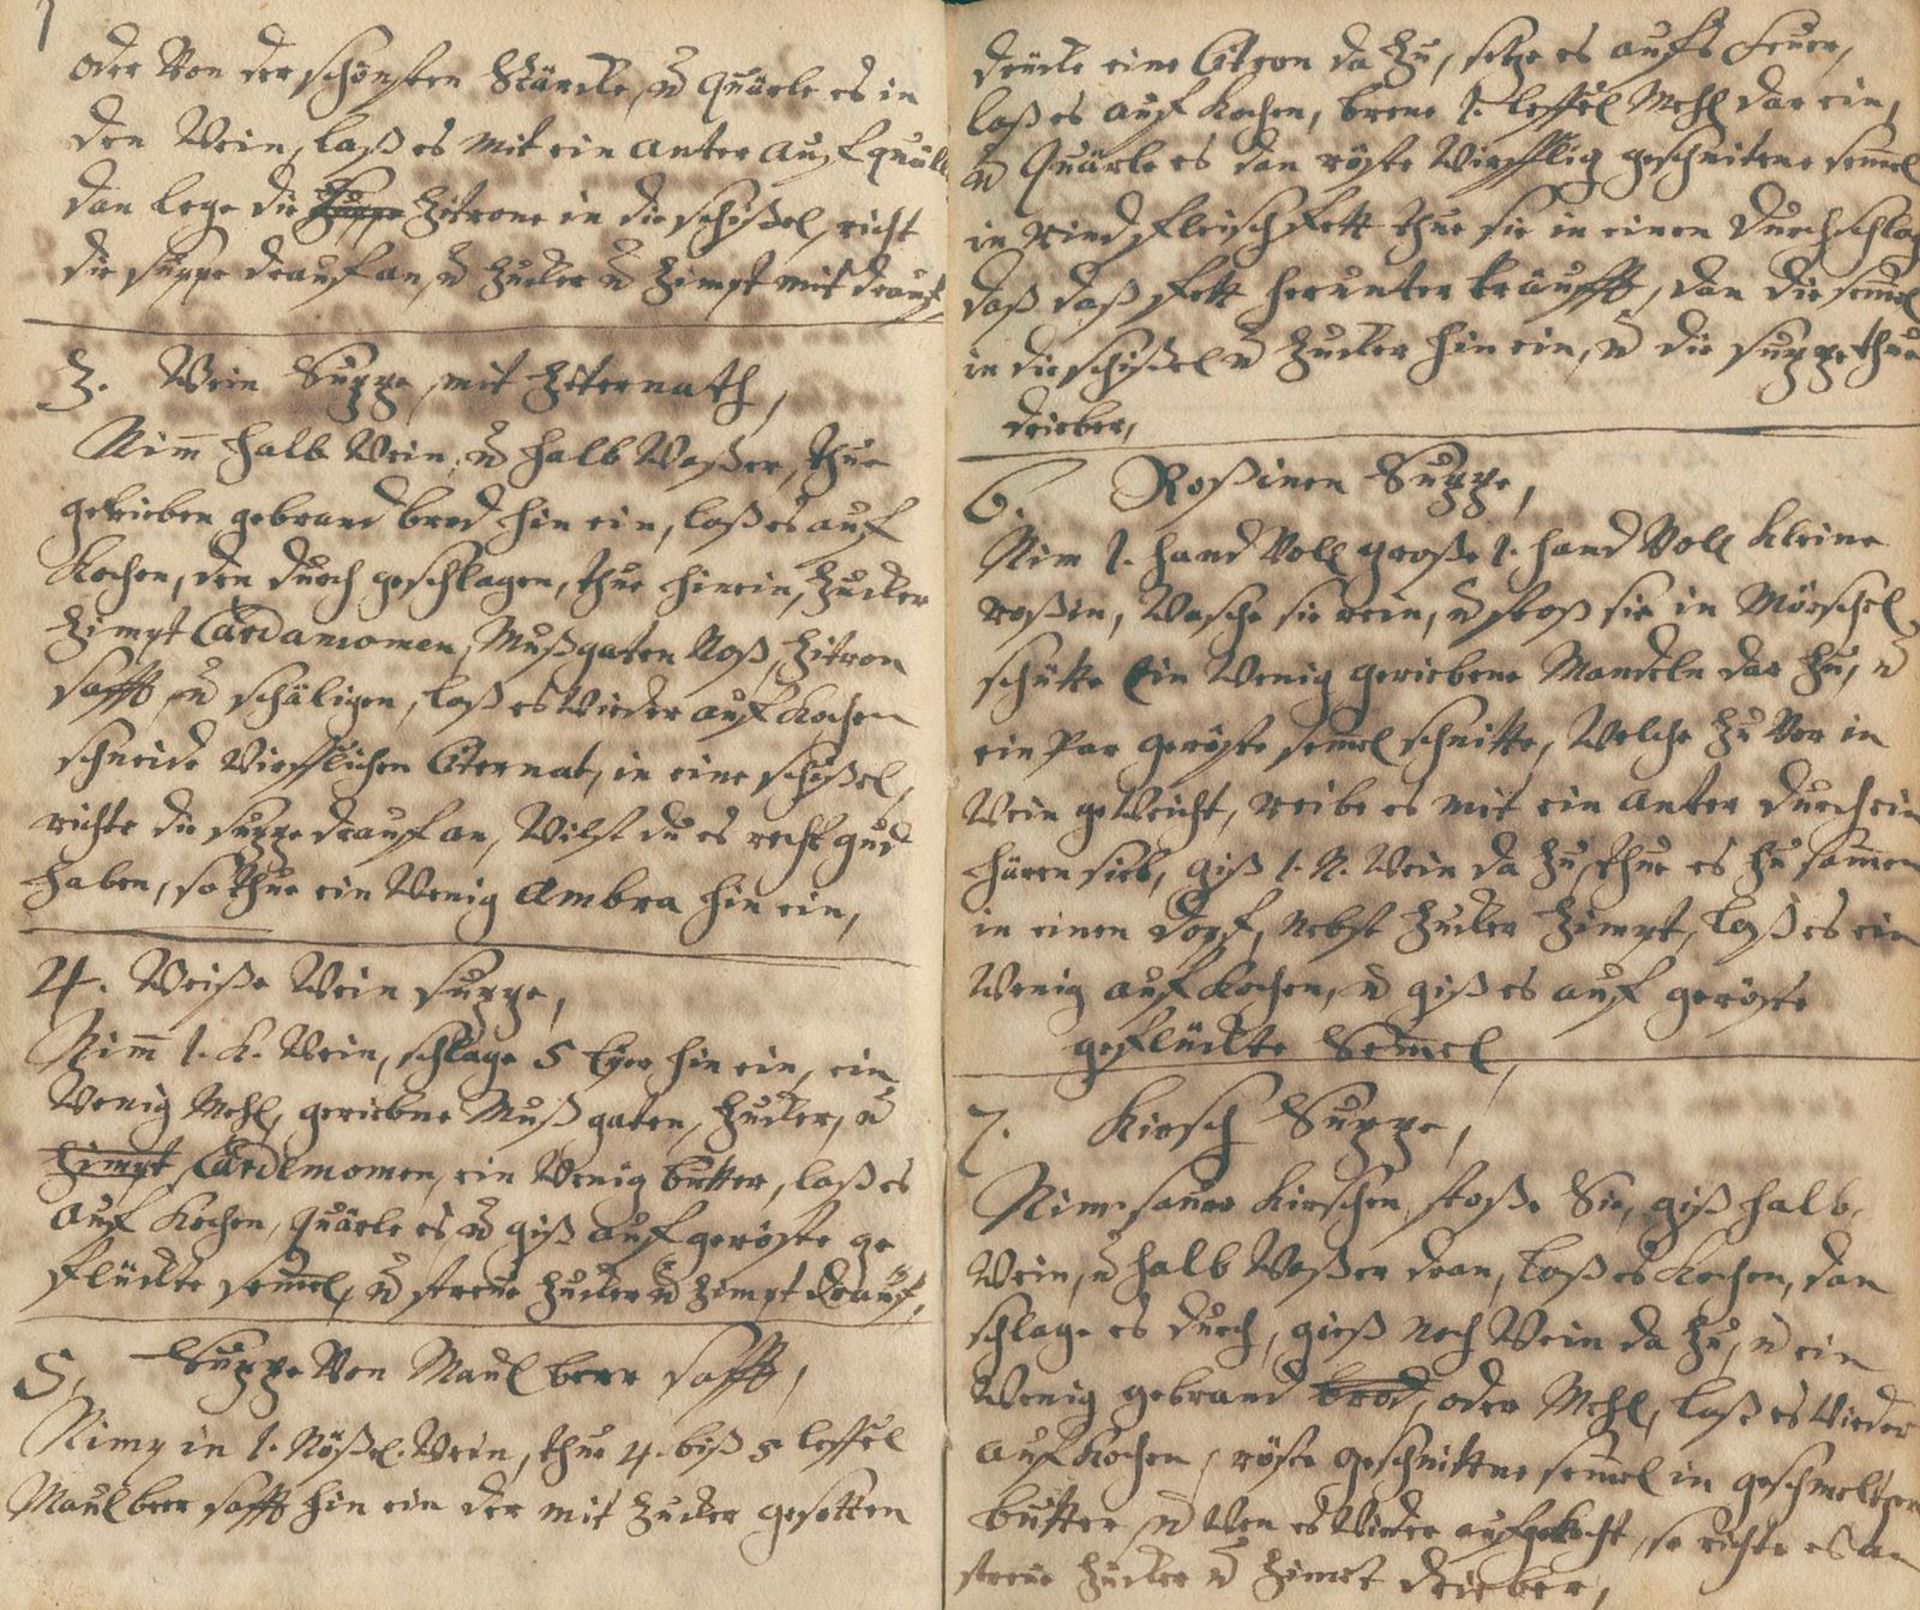 oder Von der schönsten Stärcke, u Quärle es in
den Wein, laß es mit ein anter auf quäll
dan lege die Zitrone in die schüßel, richt
die suppe drauf an, u Zucker u Zimpt mit drauf,
3. Wein Suppe, mit Ziternath,
Nim̄ halb Wein, u halb Waßer, thue
gerieben gebrand brod hin ein, laß es auf
Kochen, den durch geschlagen, thue hinein, Zucker
Zimpt Cardamomen, Mußgaten Noß, Zitron
safft, u schäligen, laß es Wieder auf Kochen
schneide Wirfflichen Citernat, in eine schüßel,
richte die suppe drauf an, Wilst du es recht gud
haben, so thue ein Wenig Ambra hin ein,
4. Weiße Wein suppe,
Nim̄ 1. K. Wein, schlage 5 Eyer hin ein, ein
Wenig Mehl, geriebne Mußgaten, Zucker, u
Zimpt, Cardemomen, ein Wenig butter, laß es
auf Kochen, quärle es, u giß auf geröste ge
flückte sem̄el, u streue Zucker u Zimpt drauf,
5, Suppe Von Maul beer safft,
Nimm in 1. Nößel. Wein, thue 4. biß 5 leffel
Maulbeer safft hin ein der mit Zucker gesotten
drücke eine Citron da Zu, setze es aufs feuer,
laß es auf Kochen, brene 1. leffel Mehl dar ein,
u Quärle es dan röste Wirfflig geschnitene sem̄el
in Rindfleisch fett thue sie in einen durchschlag
daß daß fett herunter träufft, dan die sem̄el
in die schißel u Zucker hin ein, u die suppe thue
drieber,
6. Roßinen Suppe,
Nim 1. hand Voll große 1. hand Voll Kleine
roßin, Wasche sie rein, u stoß sie in Mörschel
schütte Ein Wenig geriebene Mandeln dar Zu, u
ein Par geröste sem̄el schnitte, Welche Zu Vor in
Wein geWeicht, reibe es mit ein anter durch ein
hären sieb, giß 1. N. Wein da Zu, thue es Zu sam̄en
in einen dopf, nebst Zucker Zimpt, laß es ein
Wenig auf Kochen, u giß es auf geröste
geflückte Sem̄el,
7. Kirsch Suppe,
Nim sauer Kirschen, stoße Sie, giß halb
Wein, u halb Waßer dran, laß es Kochen, dan
schlage es durch, gieß noch Wein da Zu, u ein
Wenig gebrand brod, oder Mehl, laß es Wieder
auf Kochen, röste geschnittne sem̄el in geschmeltzer
butter, u Wen es Wieder aufgekocht, so richte es an
streue Zucker u Zimet drieber,